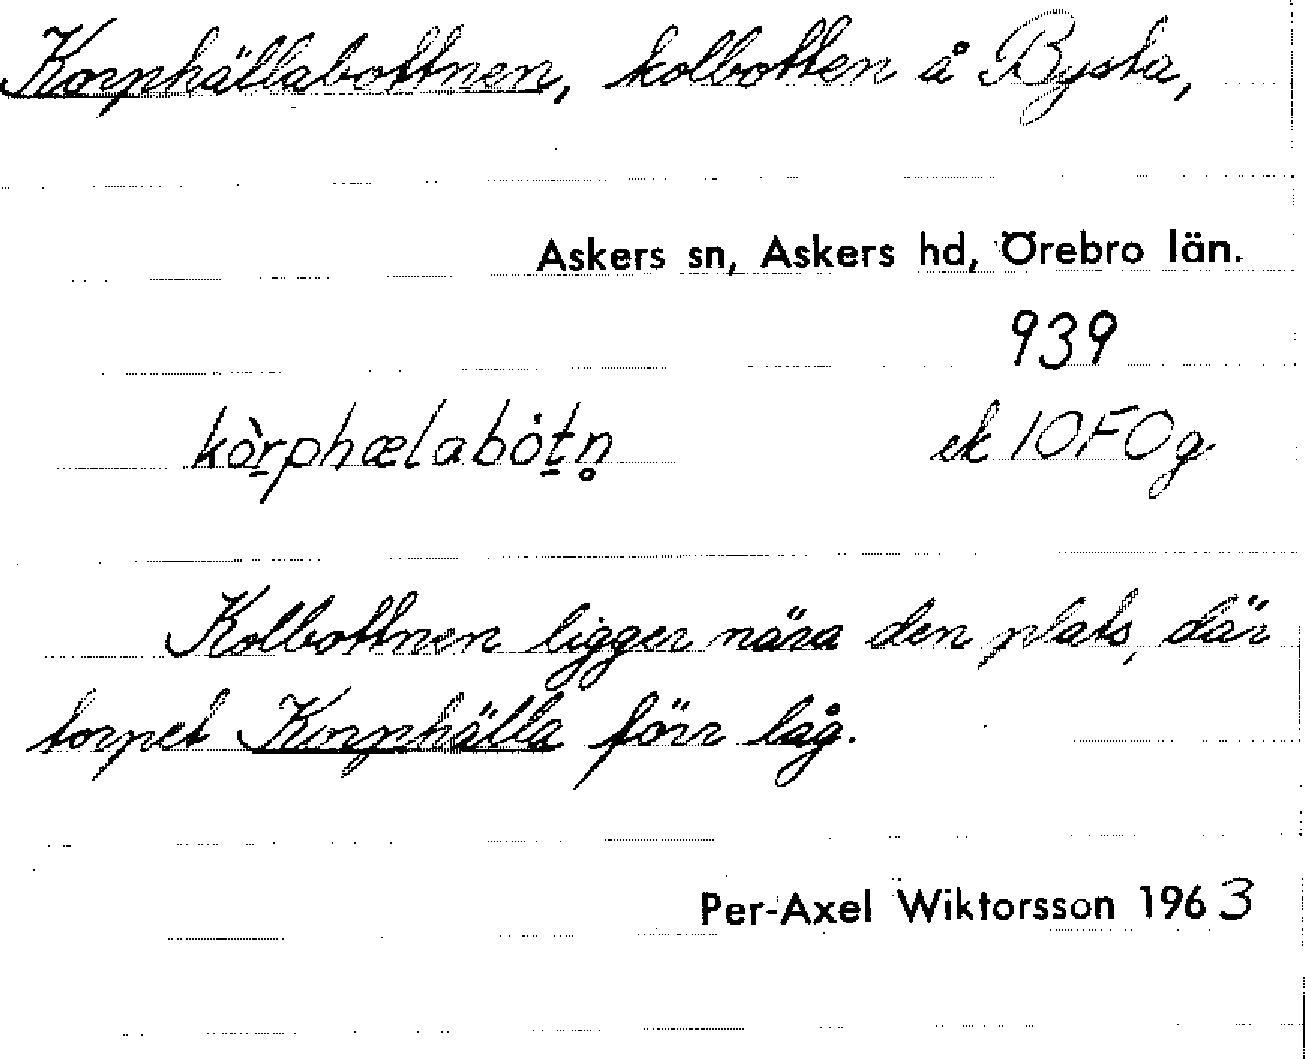 Korphällabottnen, kolbotten å Bysta,
Askers sn, Askers hd, Örebro län.
939
kòrphælabòtn̥ ek 10F0g
Kolbottnen ligger nära den plats, där
torpet Korphälla förr låg.
Per-Axel Wiktorsson 1963